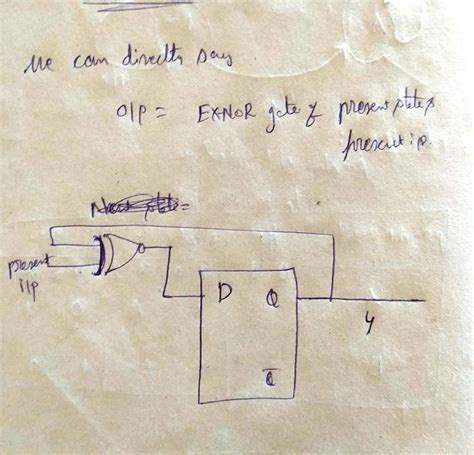 We can directly say
O/P = EX-NOR gate of present state &
present i/p.
Next state =
present
i/p
D Q
y
Q̅